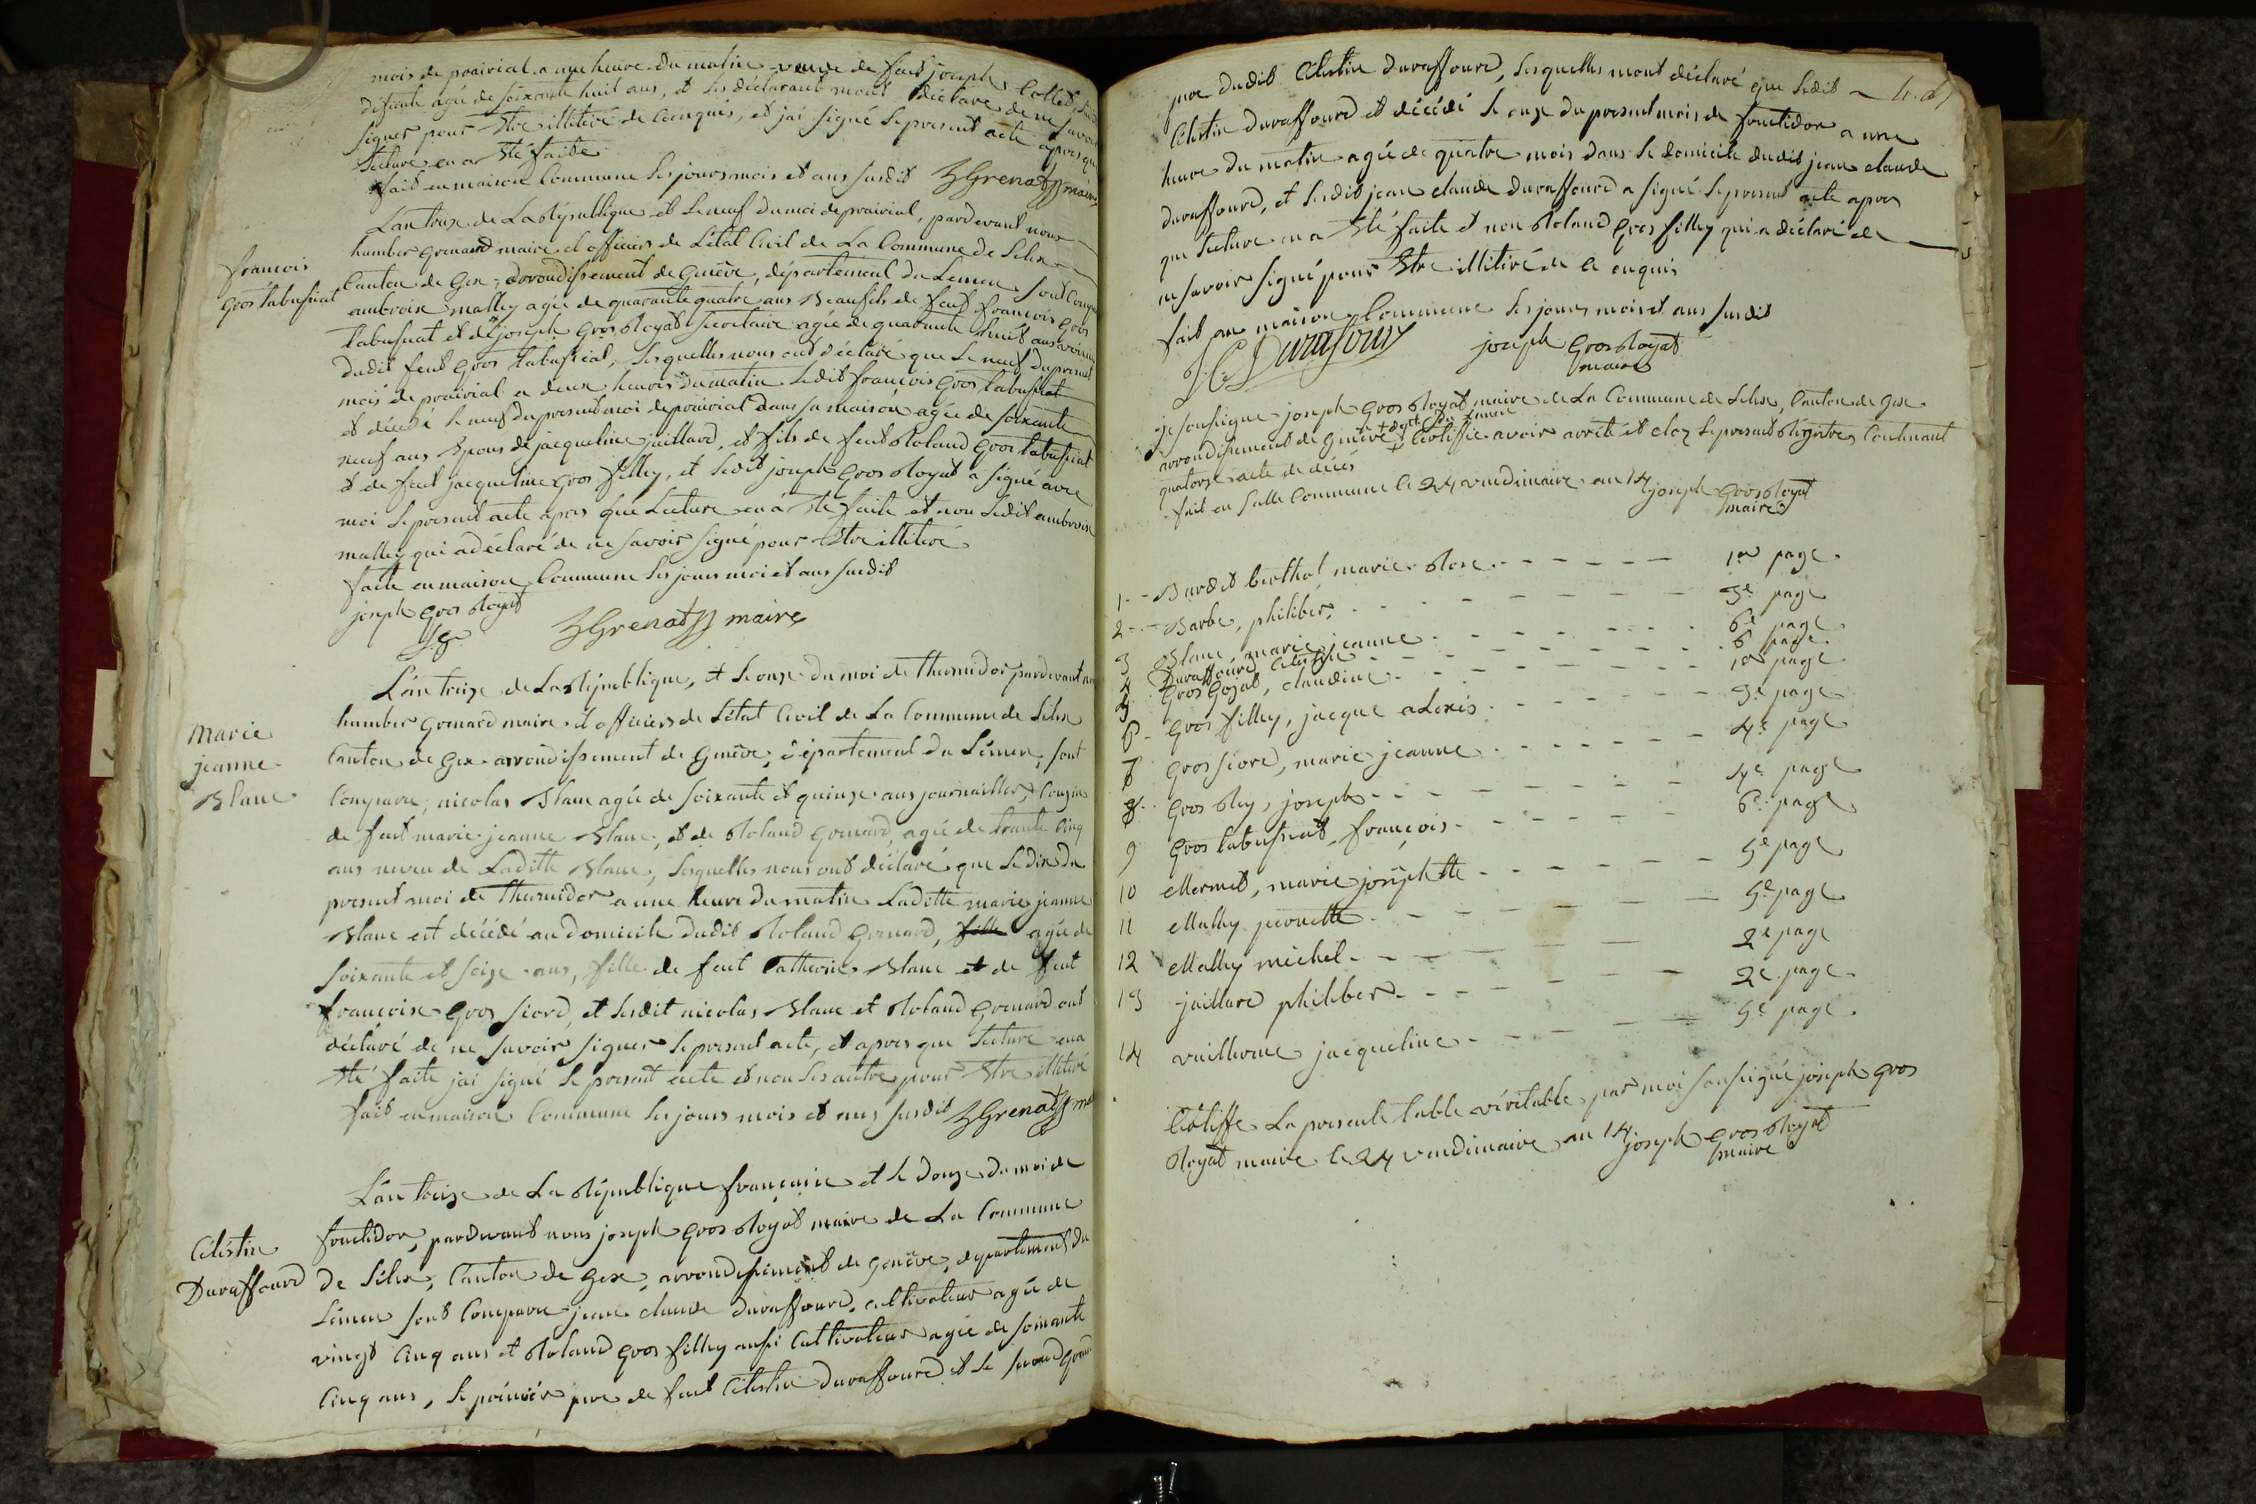 mois de prairial a une heure du matin veuve de feut joseph Collet
défunte agée de soixante huit ans, et les déclarant mont déclaré de ne savoir
signer pour Etre illitiré de ce enquis, et jai signé le present acte apres que
Lecture en a Eté faite
fait en maison Commune les jours mois et ans susdit hGrenard maire
L'an treize de La République et le neuf du moi de prairial, pardevant nous
humber grenard maire et officiers de L'état Civil de La Commune de Lelex
françois
Gros tabussiat
Canton de Gex, arrondissement de Genêve, département du Leman sont Comparu
ambroise malley agée de quarante quatre ans Beaufils de feut françois Gros
tabussiat et de joseph gros Royat secretaire agée de quarante huit ans voisin
dudit feut Gros tabussiat, lesquelles nous ont déclaré que le neuf du present
mois de prairial a deux heures du matin ledit françois Gros tabussiat
et décédé le neuf du present moi de prairial dans sa maison agée de soixante
neuf ans Epoux de jacqueline jaillard, et fils de feut Roland Gros tabussiat
et de feut jacqueline Gros filley, et ledit joseph Gros Royat a signé avec
moi le present acte apres que Lecture en a Eté faite et non ledit ambroise
malley qui a déclaré de ne savoir signé pour Etre illitiré
faite en maison Commune les jours moi et ans susdit
joseph Gros Royat
hGrenard maire
L'an treize de La République, et le onze du moi de thermidor pardevant nous
humber Grenard maire et officiers de L'état Civil de La Commune de Lelex
Marie
jeanne
Blanc
Canton de Gex arrondissement de Genêve, département du Léman, sont
Comparu, nicolas Blanc agée de soixante et quinze ans journaillier, Cousin
de feut marie jeanne Blanc, et de Roland Grenard, agée de trante Cinq
ans neveu de Laditte Blanc, lesquelles nous ont déclaré que le dix du
present moi de thermidor a une heure du matin Laditte marie jeanne
Blanc est décédé au domicile dudit Roland Grenard, fille agée de
soixante et seize ans, fille de feut Catherin Blanc et de feut
françoise Gros siord, et lesdit nicolas Blanc et Roland Grenard ont
déclaré de ne savoir signer le present acte, et apres que Lecture en a
Eté faite jai signé le present acte et non les autre pour Etre illitiré
fait en maison Commune les jours mois et ans susdit hGrenard
L'an treize de La République française et le douze du moi de
fructidor, pardevant nous joseph Gros Royat maire de La Commune
Céléstin
Duraffourd
de Lélex, Canton de Gex, arrondissement de Genêve, département du
Léman sont Comparu jean claude Duraffourd, cultivateur agée de
vingt Cinq ans et Roland Gros filley aussi Cultivateur agée de soixante
Cinq ans, le prémier pere de feut Célestin Duraffourd et le second grand
pere dudit Célestin Duraffourd, lesquelles mont déclaré que ledit
Célestin Duraffourd et décédé le onze du present mois de fructidor a une
heure du matin agée de quatre mois dans le domicile dudit jean claude
Duraffourd, et lesdit jean claude Duraffourd a signé le present acte apres
que Lecture en a Eté faite et non Roland Gros filley qui a déclaré de
ne savoir signé pour Etre illitiré de ce enquis
fait en maison Commune les jours mois et ans susdit
J.C. Durafour joseph Gros Royat
maire
je soussigne joseph Gros Royat maire de La Commune de Lelex, Canton de Gex
arrondissement de Genêve + Certiffie avoir arrêté et cloz le present Régistre Contenant
quatorze acte de décés
fait en salle Commune le 24 vendimiaire an 14 joseph Gros Royat
maire
1 Burdet berthet marie Rose 1re page
2 Barbe, philiber 3e page
3 Blanc, marie jeanne 6e page
4 Duraffourd Celestin 6 page
5 Gros Gojat, claudine 1re page
6 Gros filley, jacque alexis 3e page
7 Gros siord, marie jeanne 4e page
8 Gros Rey, joseph 4e page
9 Gros tabussiat, françois 6e page
10 Mermet, marie josephte 5e page
11 Malley pernette 5e page
12 Malley michel 2e page
13 jaillard philiber 2e page
14 vuillerme jacqueline 5e page
Certiffie La presente table véritable par moi soussigné joseph Gros
Royat maire le 24 vendimiaire an 14 joseph Gros Royat
maire